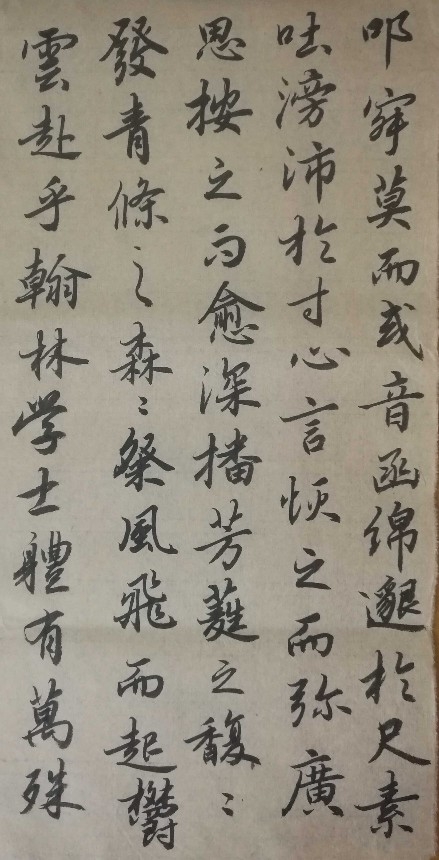 叩寂莫而求音函綿邈於尺素
吐滂沛於寸心言恢之而弥廣
思按之而愈深播芳蕤之馥〻
發青條之森〻粲風飛而起鬱
雲赴乎翰林学士體有萬殊